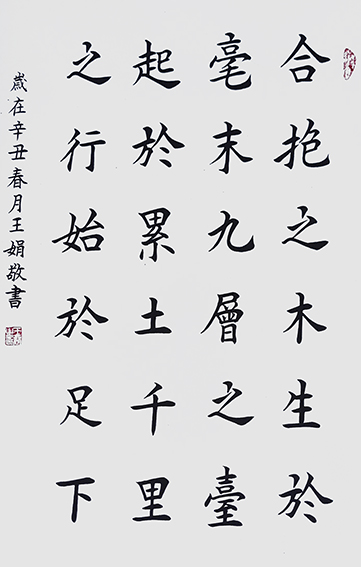 合抱之木生於
毫末九層之臺
起於累土千里
之行始於足下
歲在辛丑春月王娟敬書